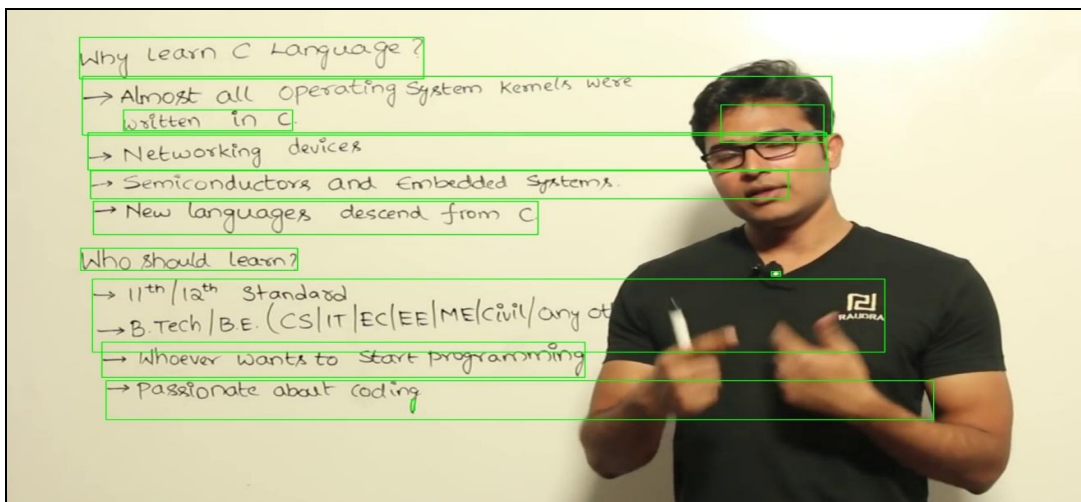 Why learn C Language?
→ Almost all operating System Kernels were
written in C.
→ Networking devices
→ Semiconductors and Embedded Systems.
→ New languages descend from C
Who should learn?
→ 11th/12th Standard
→ B.Tech/B.E. (CS|IT|EC|EE|ME|Civil/any ot
→ Whoever wants to Start programming
→ Passionate about coding
RAUDRA